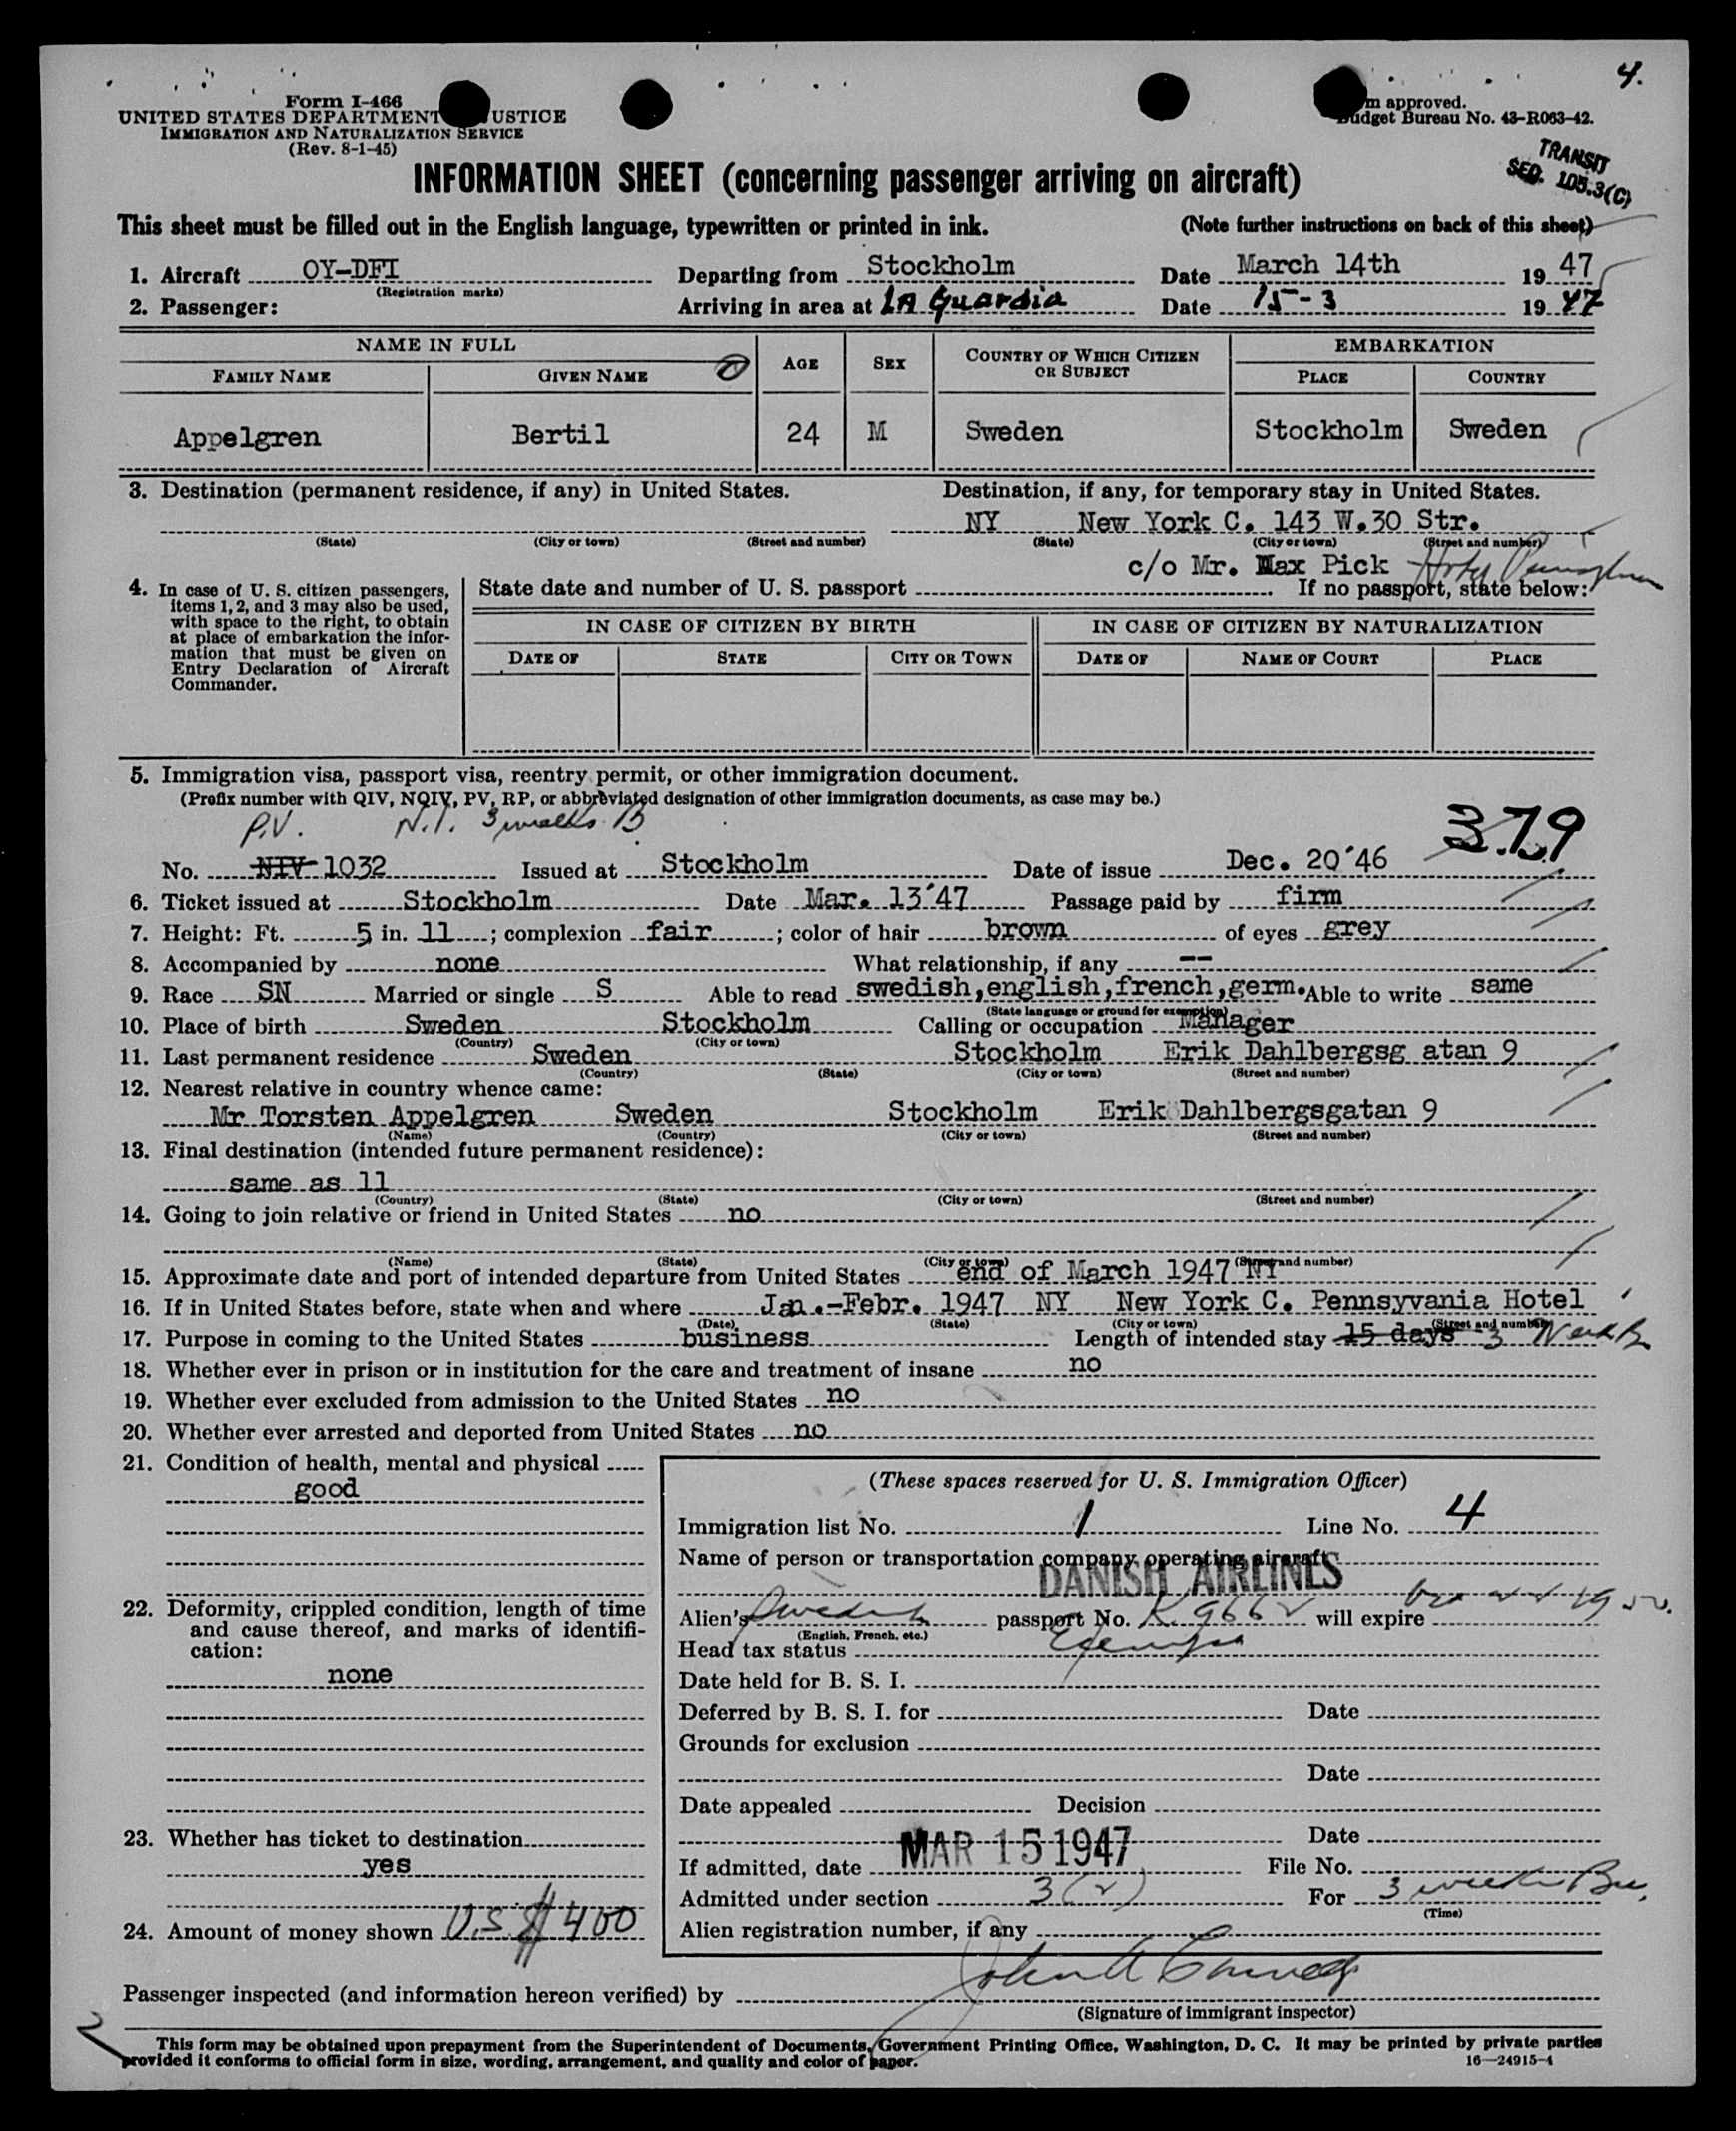 4.
Form I-466
UNITED STATES DEPARTMENT USTICE
IMMIGRATION AND NATURALIZATION SERVICE
(Rev. 8-1-45)
m approved.
Budget Bureau No. 43-R063-42.
TRANSIT
SEC. 105.3(C)
INFORMATION SHEET (concerning passenger arriving on aircraft)
This sheet must be filled out in the English language, typewritten or printed in ink. (Note further instructions on back of this sheet)
1. Aircraft OY-DFI Departing from Stockholm Date March 14th 19 47
(Registration marks)
2. Passenger: Arriving in area at LA Guardia Date 15-3 19 47
NAME IN FULL AGE SEX COUNTRY OF WHICH CITIZEN OR SUBJECT EMBARKATION
FAMILY NAME GIVEN NAME PLACE COUNTRY
Appelgren Bertil 24 M Sweden Stockholm Sweden
3. Destination (permanent residence, if any) in United States. Destination, if any, for temporary stay in United States.
NY New York C. 143 W.30 Str.
(State) (City or town) (Street and number) (State) (City or town) (Street and number)
c/o Mr. Max Pick
4. In case of U. S. citizen passengers, items 1, 2, and 3 may also be used, with space to the right, to obtain at place of embarkation the information that must be given on Entry Declaration of Aircraft Commander.
State date and number of U. S. passport If no passport, state below:
IN CASE OF CITIZEN BY BIRTH IN CASE OF CITIZEN BY NATURALIZATION
DATE OF STATE CITY OR TOWN DATE OF NAME OF COURT PLACE
5. Immigration visa, passport visa, reentry permit, or other immigration document.
(Prefix number with QIV, NQIV, PV, RP, or abbreviated designation of other immigration documents, as case may be.)
P.V. N.I. 3 weeks B
379
No. NIV 1032 Issued at Stockholm Date of issue Dec. 20´46
6. Ticket issued at Stockholm Date Mar. 13´47 Passage paid by firm
7. Height: Ft. 5 in. 11; complexion fair; color of hair brown of eyes grey
8. Accompanied by none What relationship, if any --
9. Race SN Married or single S Able to read swedish,english,french,germ. Able to write same
(State language or ground for exemption)
10. Place of birth Sweden Stockholm Calling or occupation Manager
(Country) (City or town)
11. Last permanent residence Sweden Stockholm Erik Dahlbergsg atan 9
(Country) (State) (City or town) (Street and number)
12. Nearest relative in country whence came:
Mr Torsten Appelgren Sweden Stockholm Erik Dahlbergsgatan 9
(Name) (Country) (City or town) (Street and number)
13. Final destination (intended future permanent residence):
same as 11
(Country) (State) (City or town) (Street and number)
14. Going to join relative or friend in United States no
(Name) (State) (City or town) (Street and number)
15. Approximate date and port of intended departure from United States end of March 1947 NY
16. If in United States before, state when and where Jan.-Febr. 1947 NY New York C. Pennsyvania Hotel
(Date) (State) (City or town) (Street and number)
17. Purpose in coming to the United States business Length of intended stay 15 days 3
18. Whether ever in prison or in institution for the care and treatment of insane no
19. Whether ever excluded from admission to the United States no
20. Whether ever arrested and deported from United States no
21. Condition of health, mental and physical
good
22. Deformity, crippled condition, length of time and cause thereof, and marks of identification:
none
23. Whether has ticket to destination
yes
24. Amount of money shown U.S $ 400
(These spaces reserved for U. S. Immigration Officer)
Immigration list No. 1 Line No. 4
Name of person or transportation company operating aircraft
DANISH AIRLINES
Alien's Swedish passport No. K 9662 will expire
(English, French, etc.)
Head tax status
Date held for B. S. I.
Deferred by B. S. I. for Date
Grounds for exclusion
Date
Date appealed Decision
Date
If admitted, date MAR 15 1947 File No.
Admitted under section 3(2) For 3 weeks Bu.
(Time)
Alien registration number, if any
Passenger inspected (and information hereon verified) by
(Signature of immigrant inspector)
2
This form may be obtained upon prepayment from the Superintendent of Documents, Government Printing Office, Washington, D. C. It may be printed by private parties
provided it conforms to official form in size, wording, arrangement, and quality and color of paper.
16—24915-1